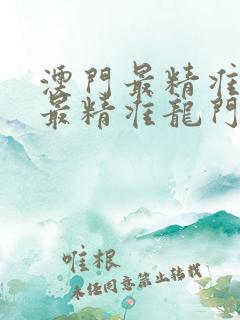 澳門最精准
最精准龍門
唯根
未经同意禁止转载